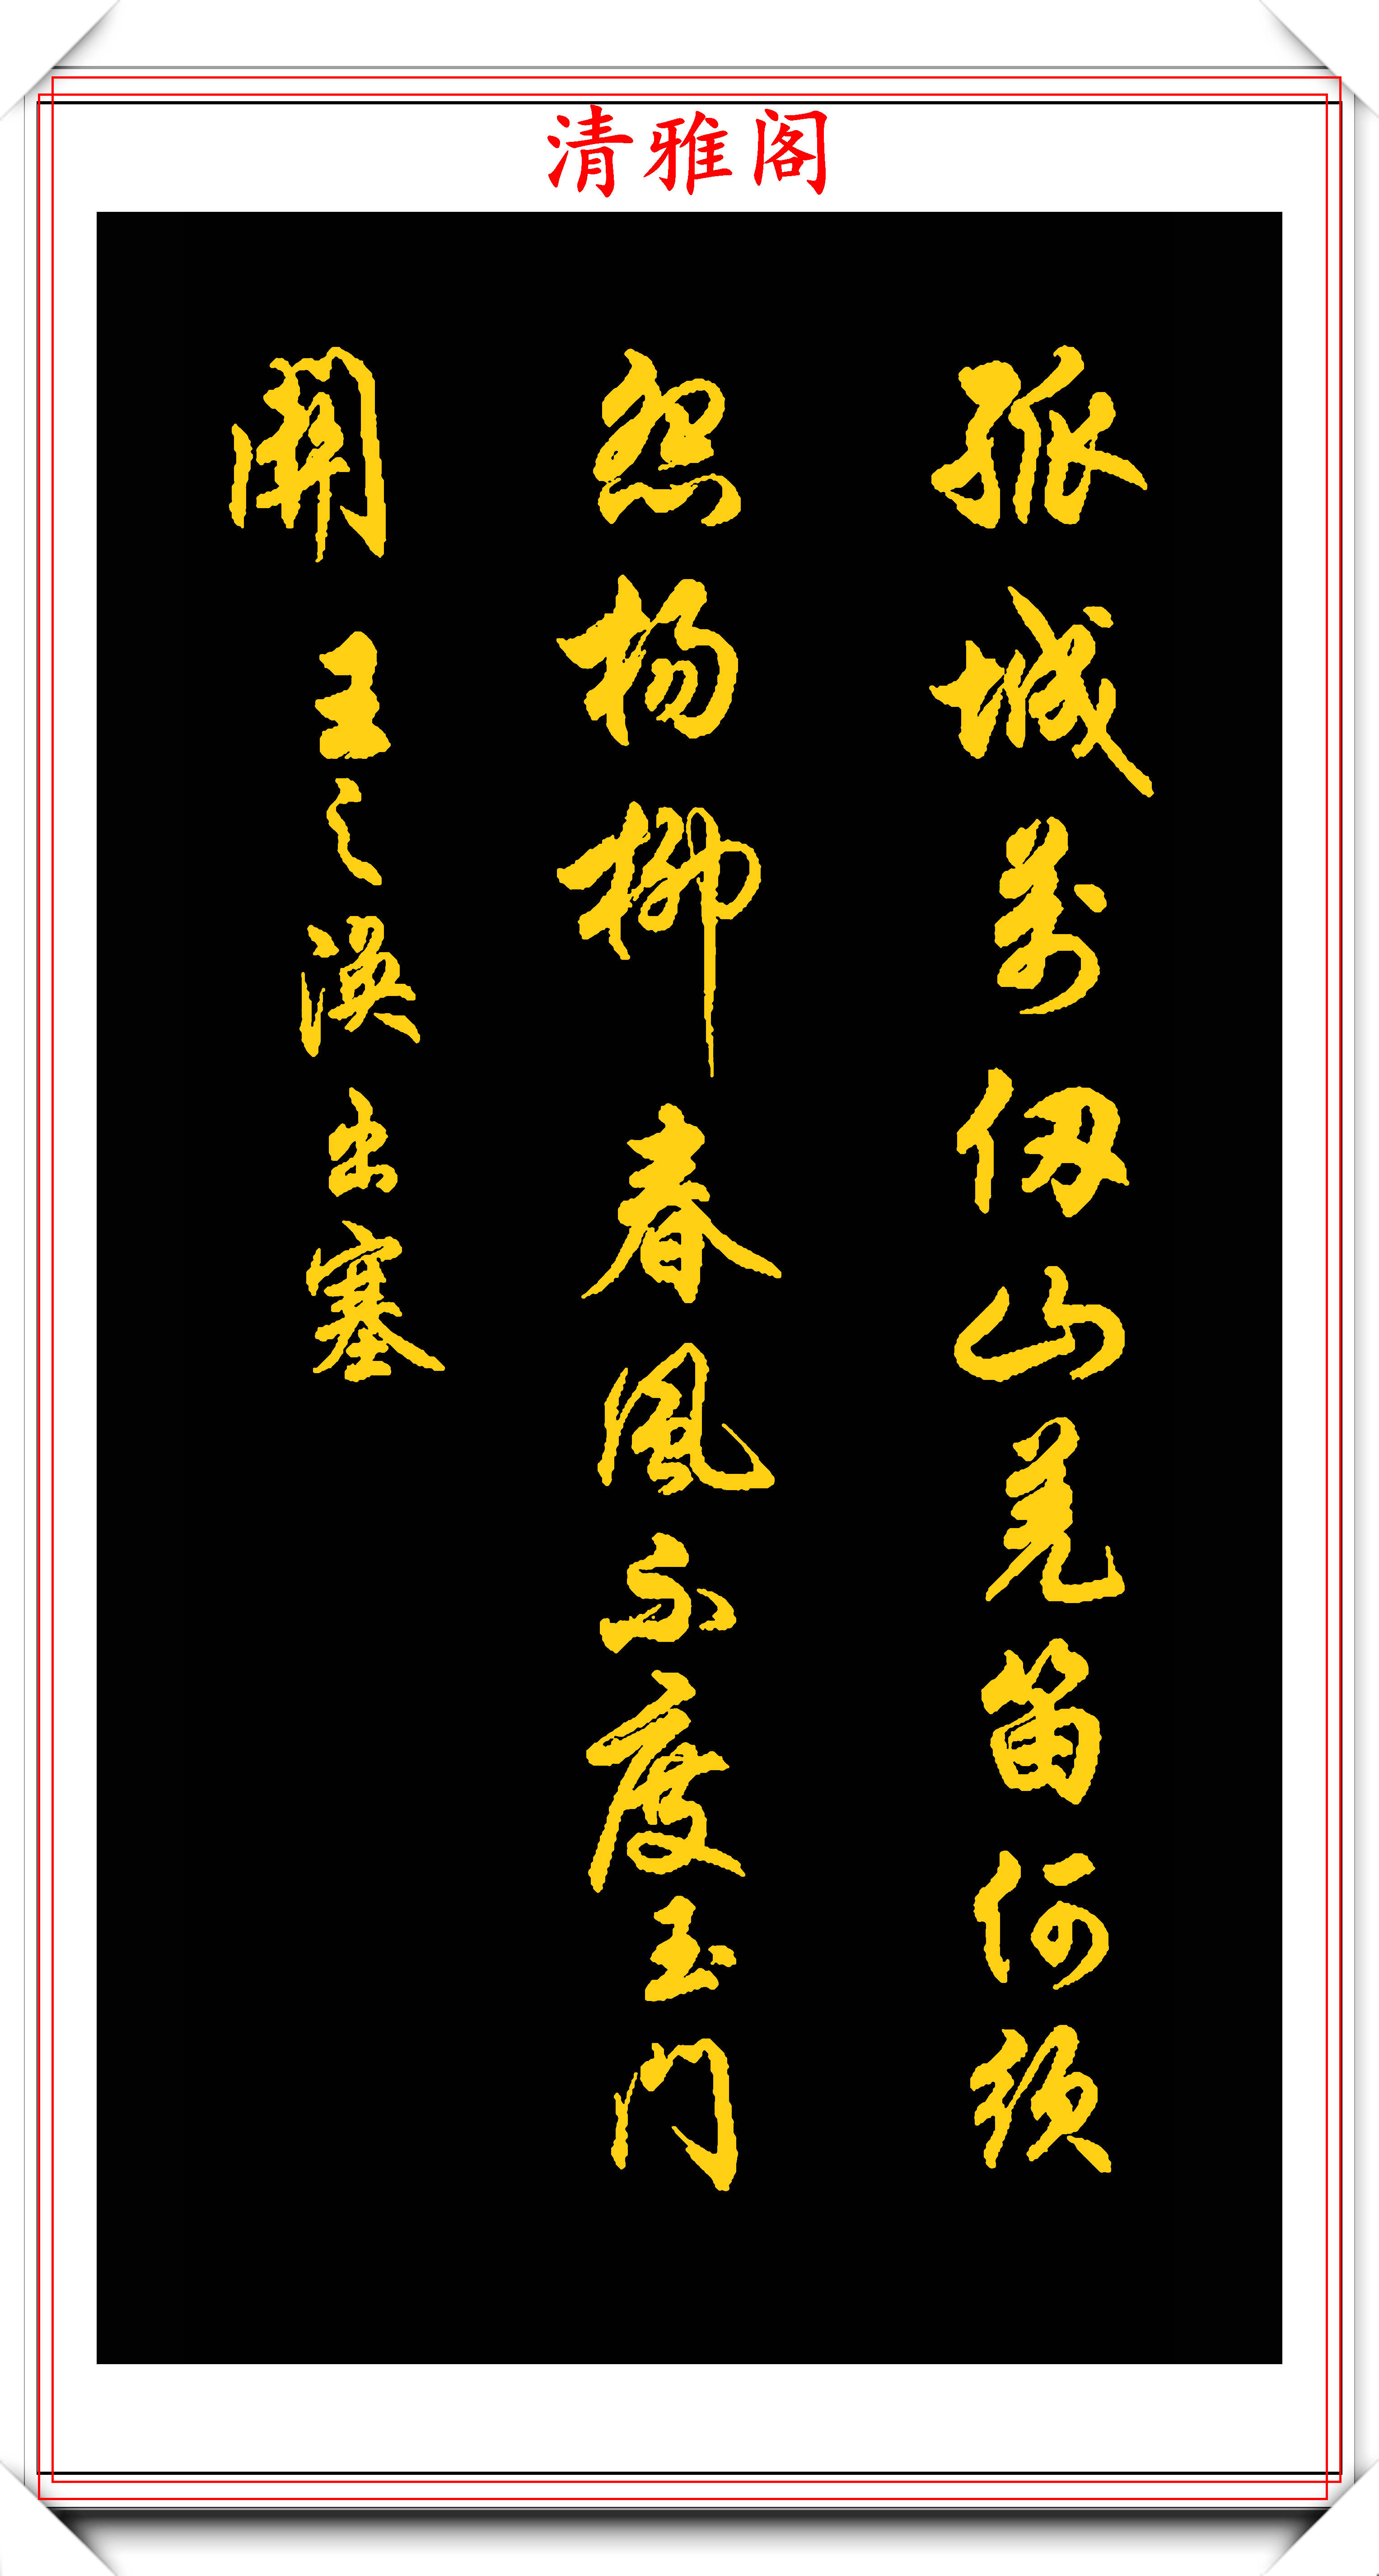 清雅阁
孤城萬仞山羌笛何須
怨杨柳春風不度玉门
關王之渙出塞